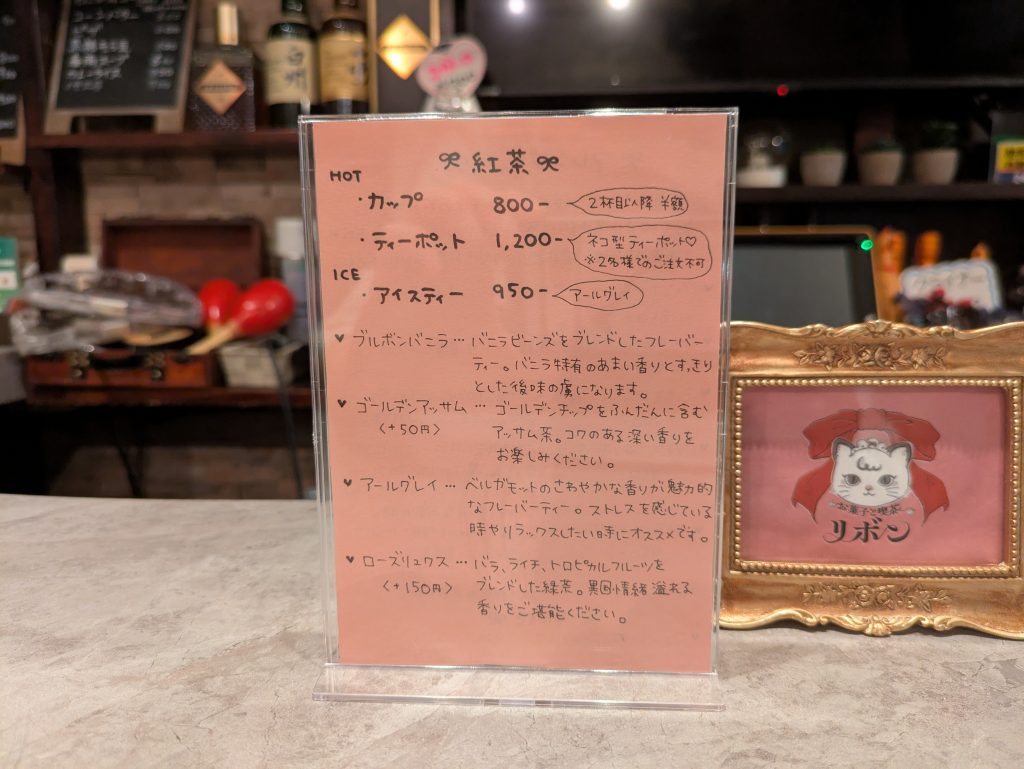 白州
紅茶
HOT
・カップ 800- 2杯目以降 半額
・ティーポット 1,200- ネコ型ティーポット♡
※2名様でのご注文不可
ICE
・アイスティー 950- アールグレイ
♥ ブルボンバニラ … バニラビーンズをブレンドしたフレーバー
ティー。バニラ特有のあまい香りとすっきり
とした後味の虜になります。
♥ ゴールデンアッサム … ゴールデンチップをふんだんに含む
〈+50円〉 アッサム茶。コクのある深い香りを
お楽しみください。
♥ アールグレイ … ベルガモットのさわやかな香りが魅力的
なフレーバーティー。ストレスを感じている
時やリラックスしたい時にオススメです。
♥ ローズリュクス … バラ、ライチ、トロピカルフルーツを
〈+150円〉 ブレンドした緑茶。異国情緒溢れる
香りをご堪能ください。
お菓子と喫茶
リボン